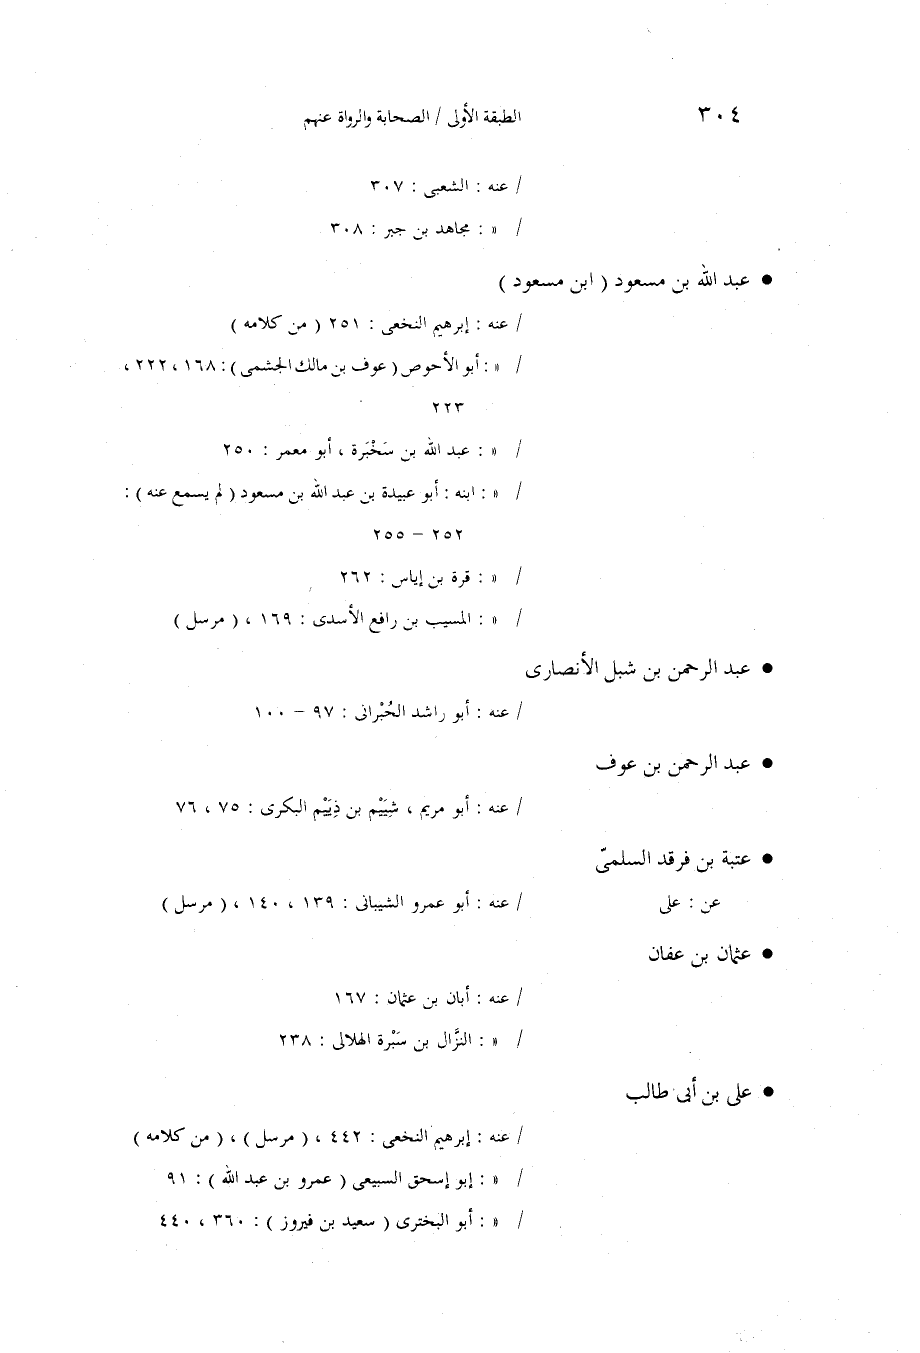 ٣٠٤ الطبقة الأولى / الصحابة والرواة عنهم
/ عنه : الشعبى : ٣٠٧
/ » : مجاهد بن جبر : ٣٠٨
● عبد الله بن مسعود ( ابن مسعود )
/ عنه : إبرهيم النخعى : ٢٥١ ( من كلامه )
/ » : أبو الأحوص ( عوف بن مالك الجشمى ) : ١٦٨ ، ٢٢٢ ،
٢٢٣
/ » : عبد الله بن سَخْبَرة ، أبو معمر : ٢٥٠
/ » : ابنه : أبو عبيدة بن عبد الله بن مسعود ( لم يسمع عنه ) :
٢٥٢ – ٢٥٥
/ » : قرة بن إياس : ٢٦٢
/ » : المسيب بن رافع الأسدى : ١٦٩ ، ( مرسل )
● عبد الرحمن بن شبل الأنصارى
/ عنه : أبو راشد الحُبْرانى : ٩٧ – ١٠٠
● عبد الرحمن بن عوف
/ عنه : أبو مريم ، شِيَيْم بن ذِيَيْم البكرى : ٧٥ ، ٧٦
● عتبة بن فرقد السلمىّ
عن : على / عنه : أبو عمرو الشيبانى : ١٣٩ ، ١٤٠ ، ( مرسل )
● عثمان بن عفان
/ عنه : أبان بن عثمان : ١٦٧
/ » : النزَّال بن سَبْرة الهلالى : ٢٣٨
● على بن أبى طالب
/ عنه : إبرهيم النخعى : ٤٤٢ ، ( مرسل ) ، ( من كلامه )
/ » : إبو إسحق السبيعى ( عمرو بن عبد الله ) : ٩١
/ » : أبو البخترى ( سعيد بن فيروز ) : ٣٦٠ ، ٤٤٠